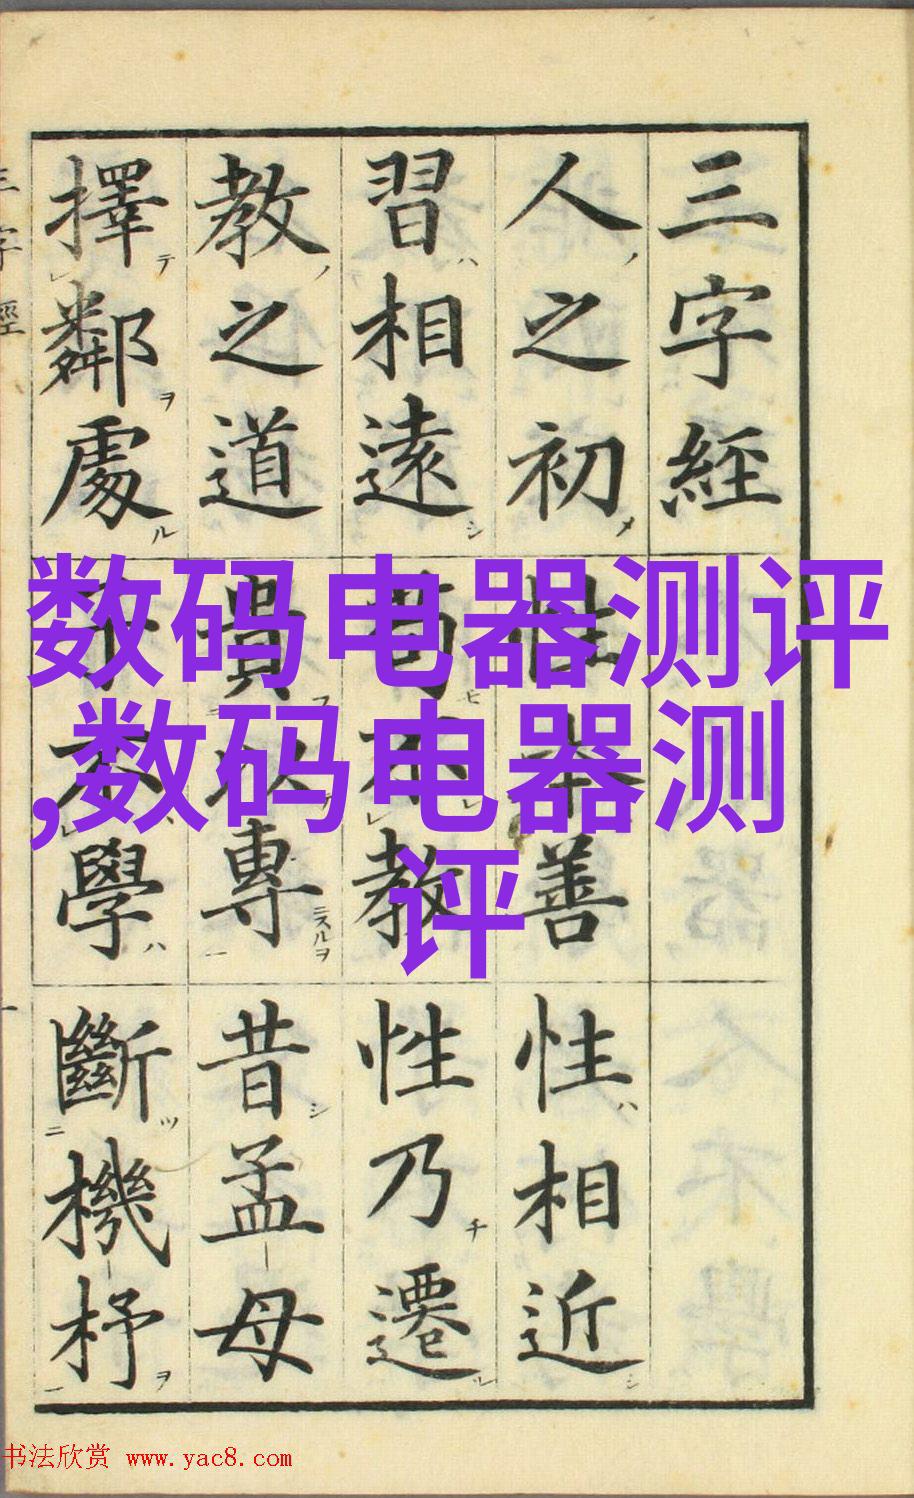 三字経
人之初性本善性相近
習相遠苟不教性乃遷
教之道貴以專昔孟母
擇鄰處子不學斷機杼
三字經
数码电器测评
,数码电器测
评
书法欣赏 www.yac8.com